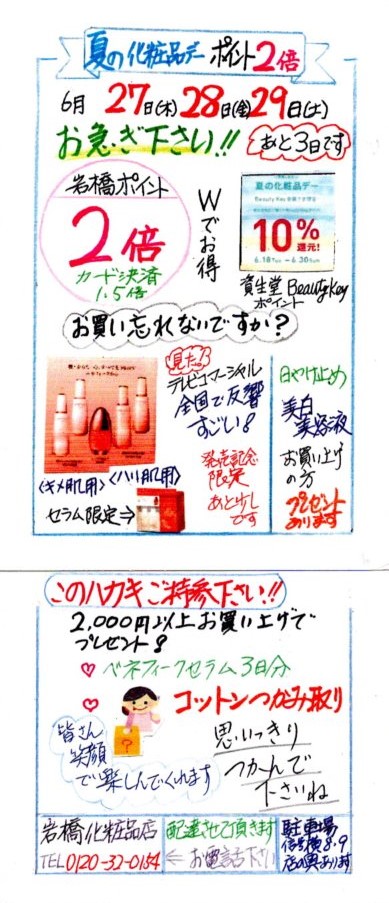 夏の化粧品デー ポイント2倍
6月 27日(木)28日(金)29日(土)
お急ぎ下さい!!
あと3日です
岩橋ポイント
2倍
カード決済
1.5倍
Wでお得
夏の化粧品デー
10%
還元!
6.18 Tue - 6.30 Sun
資生堂 Beautykey
ポイント
お買い忘れないですか?
見た?
テレビコマーシャル
全国で反響
すごい!
発売記念
限定
あと少し
です
<キメ肌用> <ハリ肌用>
セラム限定⇒
日やけ止め
美白
美容液
お買い上げ
の方
プレゼント
あります
このハガキご持参下さい!!
2,000円以上お買い上げで
プレゼント!
♡ ベネフィークセラム3日分
♡ コットンつかみ取り
?
皆さん
笑顔
で楽しんでくれます
思いっきり
つかんで
下さいね
岩橋化粧品店
TEL 0120-32-0154
配達させて頂きます
⇐ お電話下さい
駐車場
信号横8・9
店の裏あります